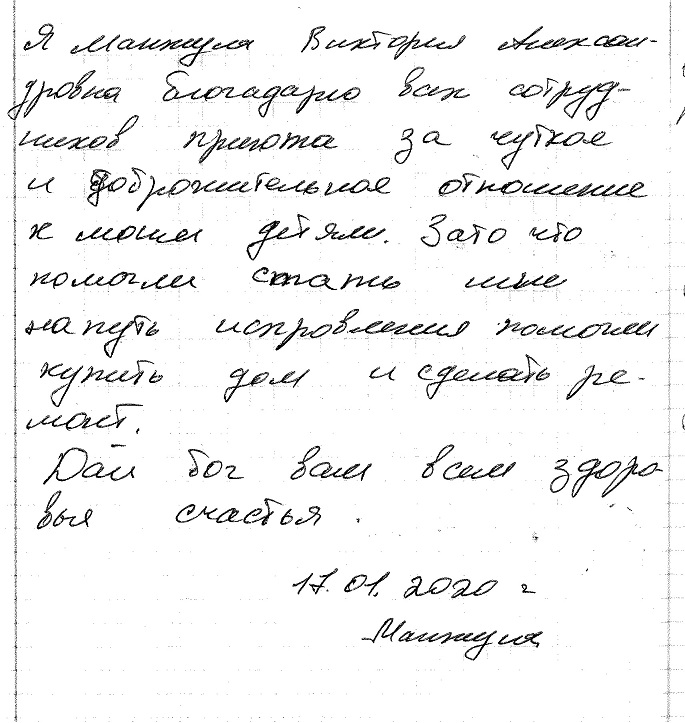 Я Манжула Виктория Алексан-
дровна благадарю всех сотруд-
ников приюта за чуткое
и доброжительное отношение
к моим детям. Зато что
помогли стать мне
на путь исправления помогли
купить дом и сделать ре-
монт.
Дай бог вам всем здоро-
вья счастья.
17.01.2020 г
Манжула